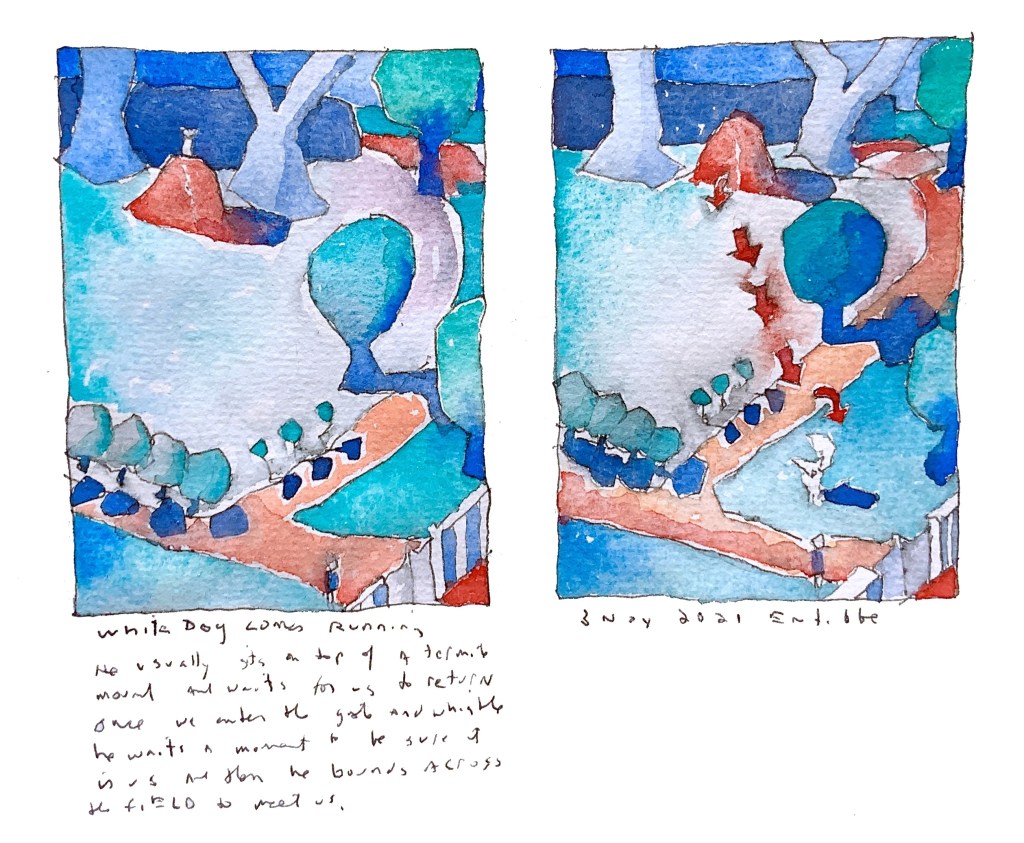 White Dog comes Running
He usually sits on top of A termite
mound and waits for us to return
once we enter the gate and whistle
he waits a moment to be sure it
is us and then he bounds Across
the fIELD to meet us.
3 Nov 2021 Entebbe